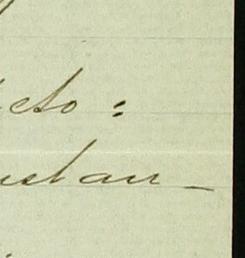 cto:
ustan-